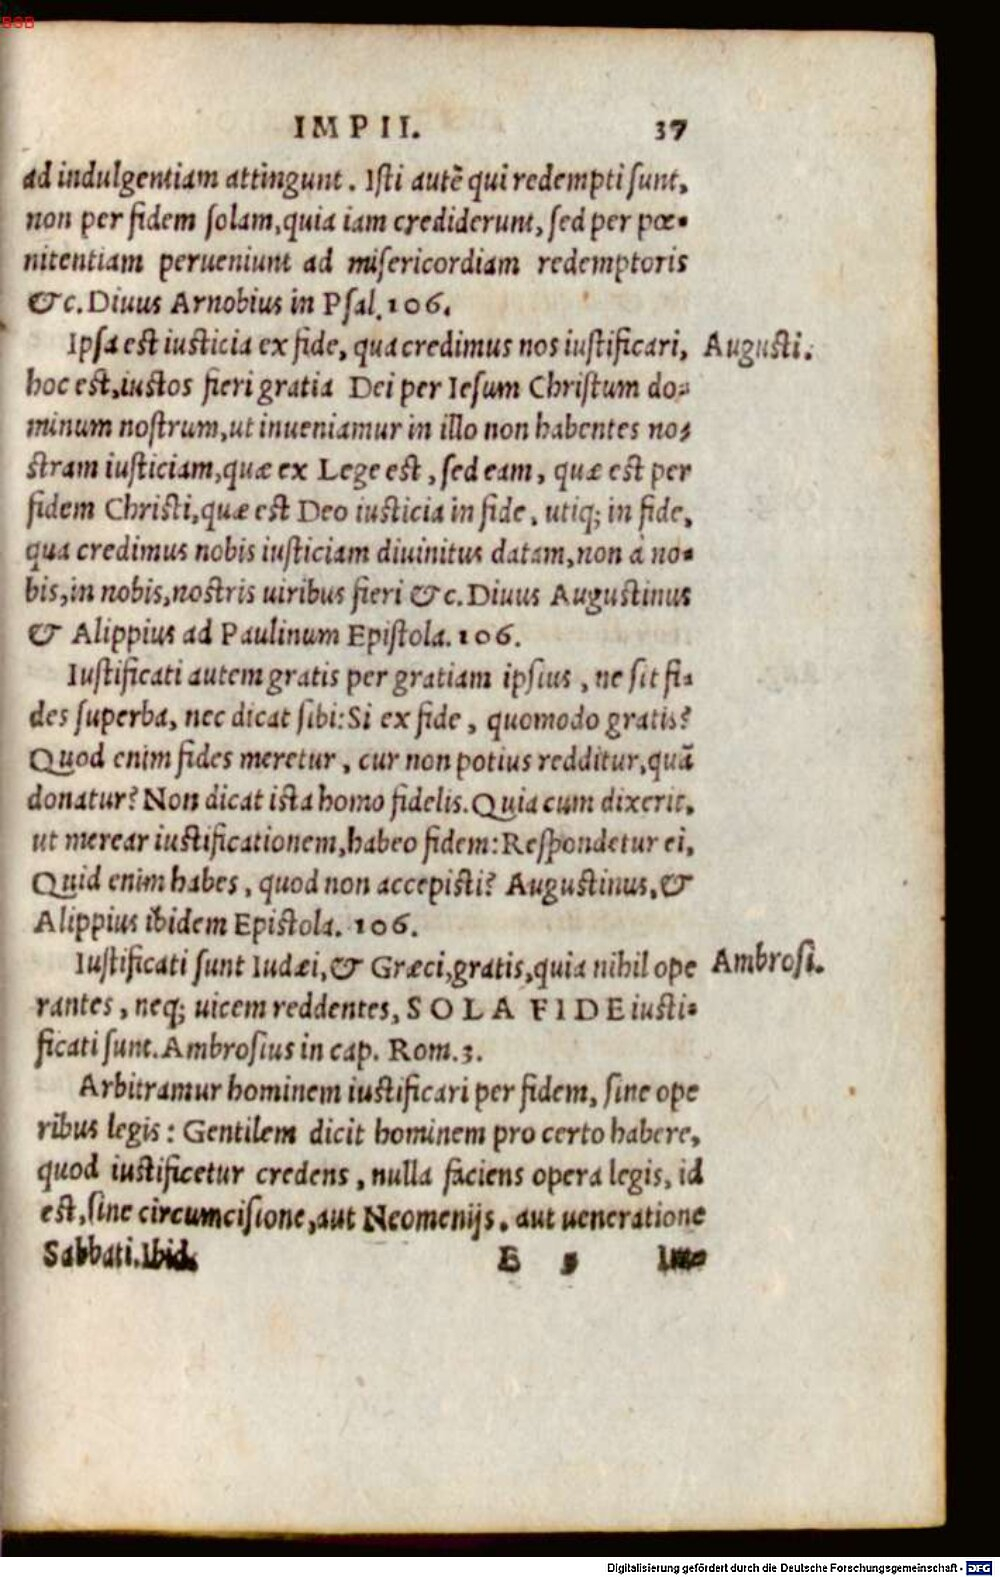 BSB
IMPII. 37
ad indulgentiam attingunt. Isti autē qui redempti sunt,
non per fidem solam, quia iam crediderunt, sed per pœ-
nitentiam perueniunt ad misericordiam redemptoris
&c. Diuus Arnobius in Psal. 106.
Ipsa est iusticia ex fide, qua credimus nos iustificari, Augusti.
hoc est, iustos fieri gratia Dei per Iesum Christum do-
minum nostrum, ut inueniamur in illo non habentes no-
stram iusticiam, quæ ex Lege est, sed eam, quæ est per
fidem Christi, quæ est Deo iusticia in fide, utiq; in fide,
qua credimus nobis iusticiam diuinitus datam, non à no-
bis, in nobis, nostris uiribus fieri &c. Diuus Augustinus
& Alippius ad Paulinum Epistola. 106.
Iustificati autem gratis per gratiam ipsius, ne sit fi-
des superba, nec dicat sibi: Si ex fide, quomodo gratis?
Quod enim fides meretur, cur non potius redditur, quā
donatur? Non dicat ista homo fidelis. Quia cum dixerit,
ut merear iustificationem, habeo fidem: Respondetur ei,
Quid enim habes, quod non accepisti? Augustinus, &
Alippius ibidem Epistola. 106.
Iustificati sunt Iudæi, & Græci, gratis, quia nihil ope Ambrosi.
rantes, neq; uicem reddentes, SOLA FIDE iusti-
ficati sunt. Ambrosius in cap. Rom. 3.
Arbitramur hominem iustificari per fidem, sine ope
ribus legis: Gentilem dicit hominem pro certo habere,
quod iustificetur credens, nulla faciens opera legis, id
est, sine circumcisione, aut Neomenijs, aut ueneratione
Sabbati. Ibid. E 5
Digitalisierung gefördert durch die Deutsche Forschungsgemeinschaft - DFG